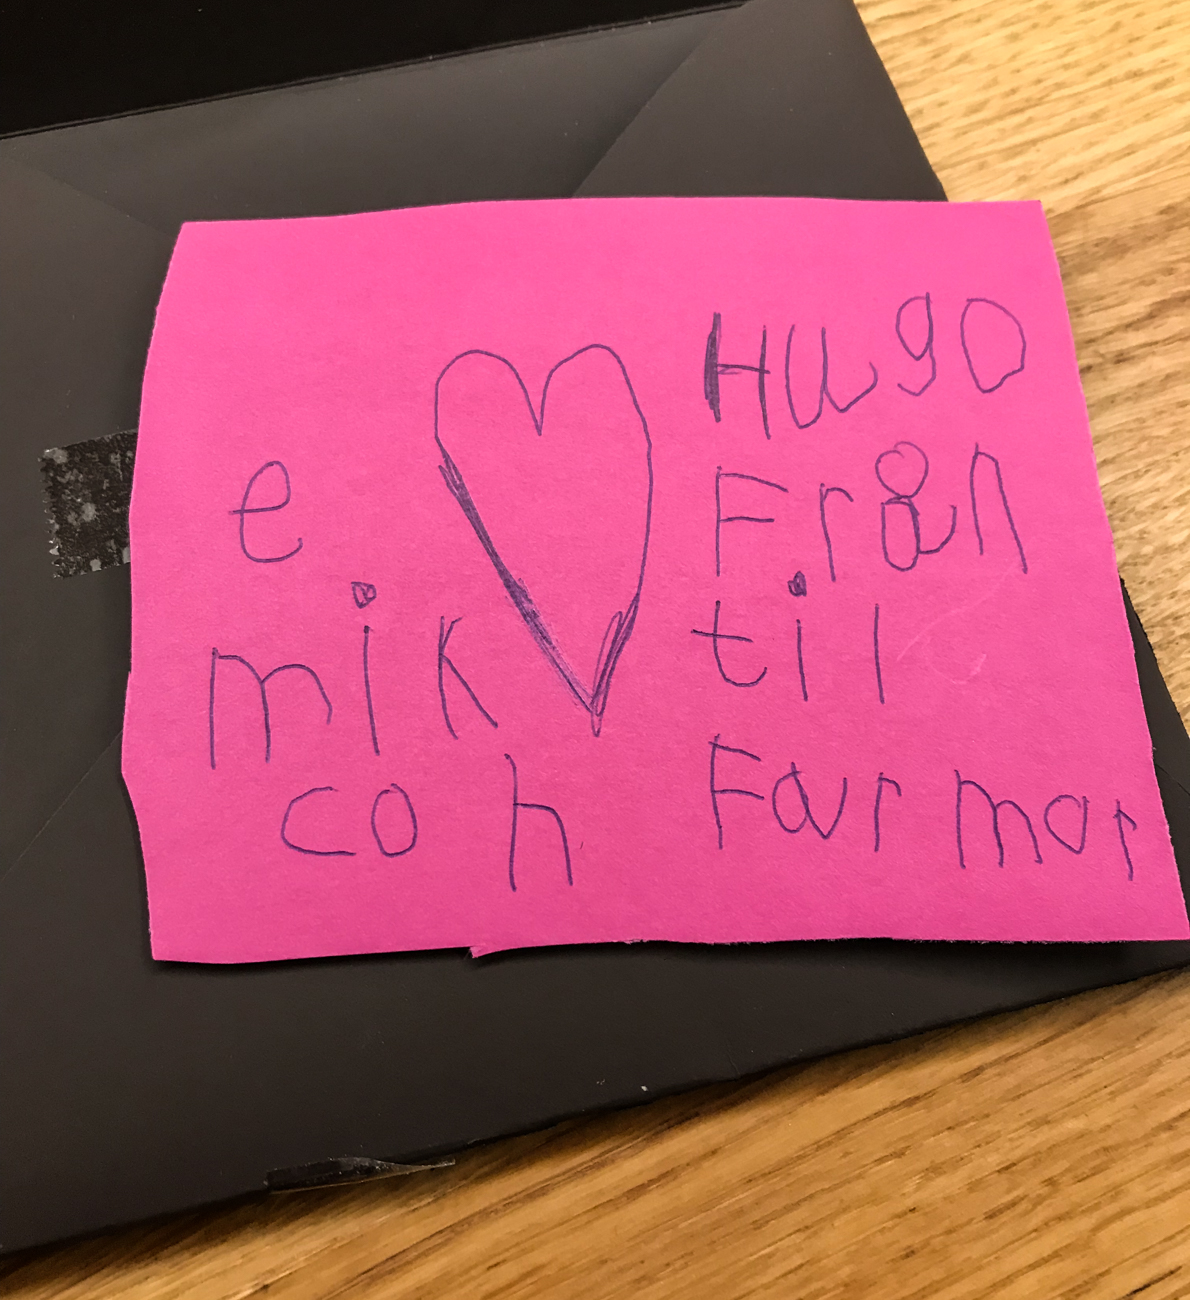 Hugo
Från
til
Farmor
e
mik
co h